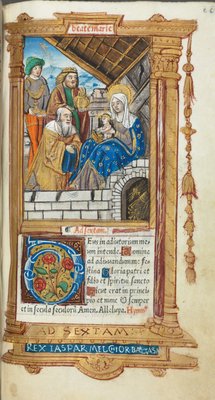 beate marie
Ad sextam.
DEus in adiutorium me
um intende. Domine
ad adiuuandum me fe
stina Gloria patri et
filio et spiritui sancto
Sicut erat in princi
pio et nunc Et semper
et in secula seculorū Amen. Alleluya.
AD SEXTAM
REX IASPAR MELCHIOR